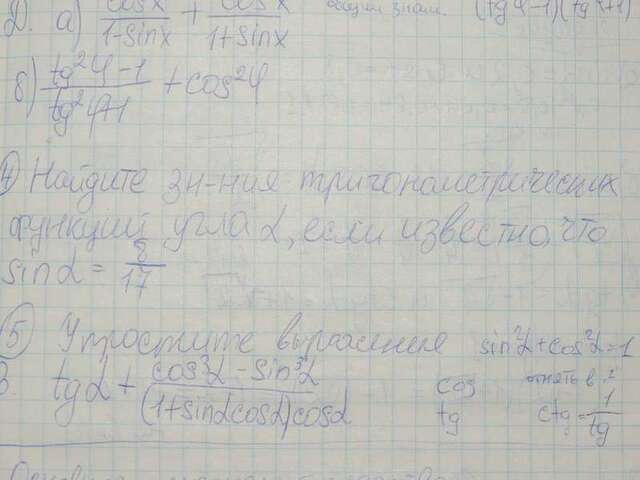 2. а) cosx/1-sinx + cosx/1+sinx общий знам. (tgφ-1)(tgφ+1)
б) tg²φ-1/tg²φ+1 + cos²φ
4) Найдите зн-ния тригонометрических
функций угла α, если известно, что
sinα = 8/17
5) Упростите выражение sin²α+cos²α=1
tgα + cos³α - sin³α/(1+sinαcosα)cosα cos
tg ctg = 1/tg